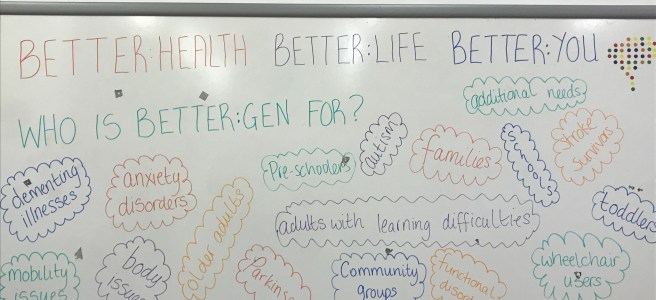 BETTER:HEALTH BETTER:LIFE BETTER:YOU
WHO IS BETTER:GEN FOR?
additional needs
dementing
illnesses
anxiety
disorders
Pre-schoolers
autism
families
Schools
Stroke
Survivors
older adults
adults with learning difficulties
toddlers
mobility
issues
body
issues
Parkins
Community
groups
functional
disord
wheelchair
users